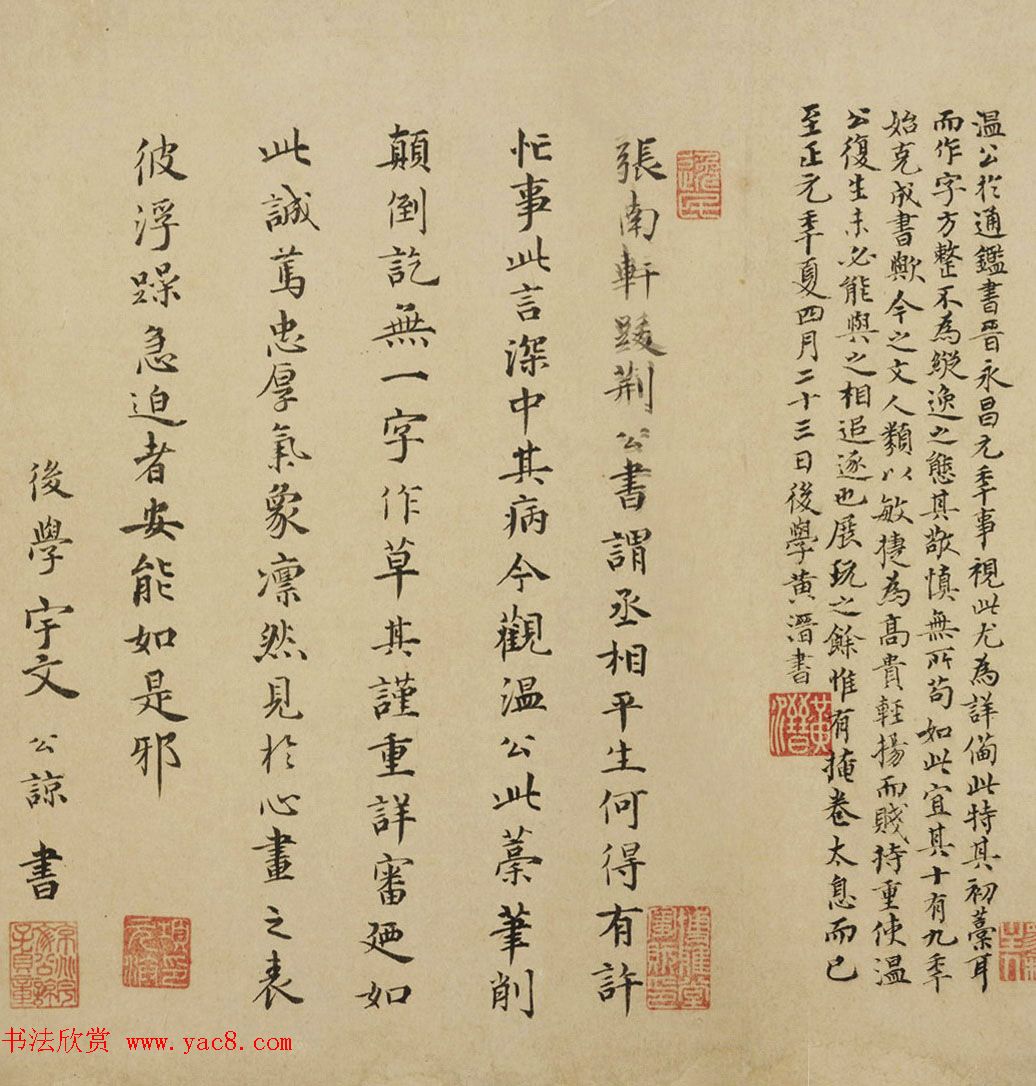 温公於通鑑書晉永昌元秊事視此尤為詳備此特其初藁耳
而作字方整不為縱逸之態其敬慎無所苟如此宜其十有九秊
始克成書歟今之文人類以敏捷為髙貴輕揚而賤持重使温
公復生未必能與之相追逐也展玩之餘惟有掩卷太息而已
至正元秊夏四月二十三日後學黄溍書
黄溍
張南軒跋荆公書謂丞相平生何得有許
忙事此言深中其病今觀温公此藁筆削
顛倒訖無一字作草其謹重詳審廼如
此誠篤忠厚氣象凛然見於心畫之表
彼浮躁急迫者安能如是邪
後學宇文公諒書
书法欣赏 www.yac8.com